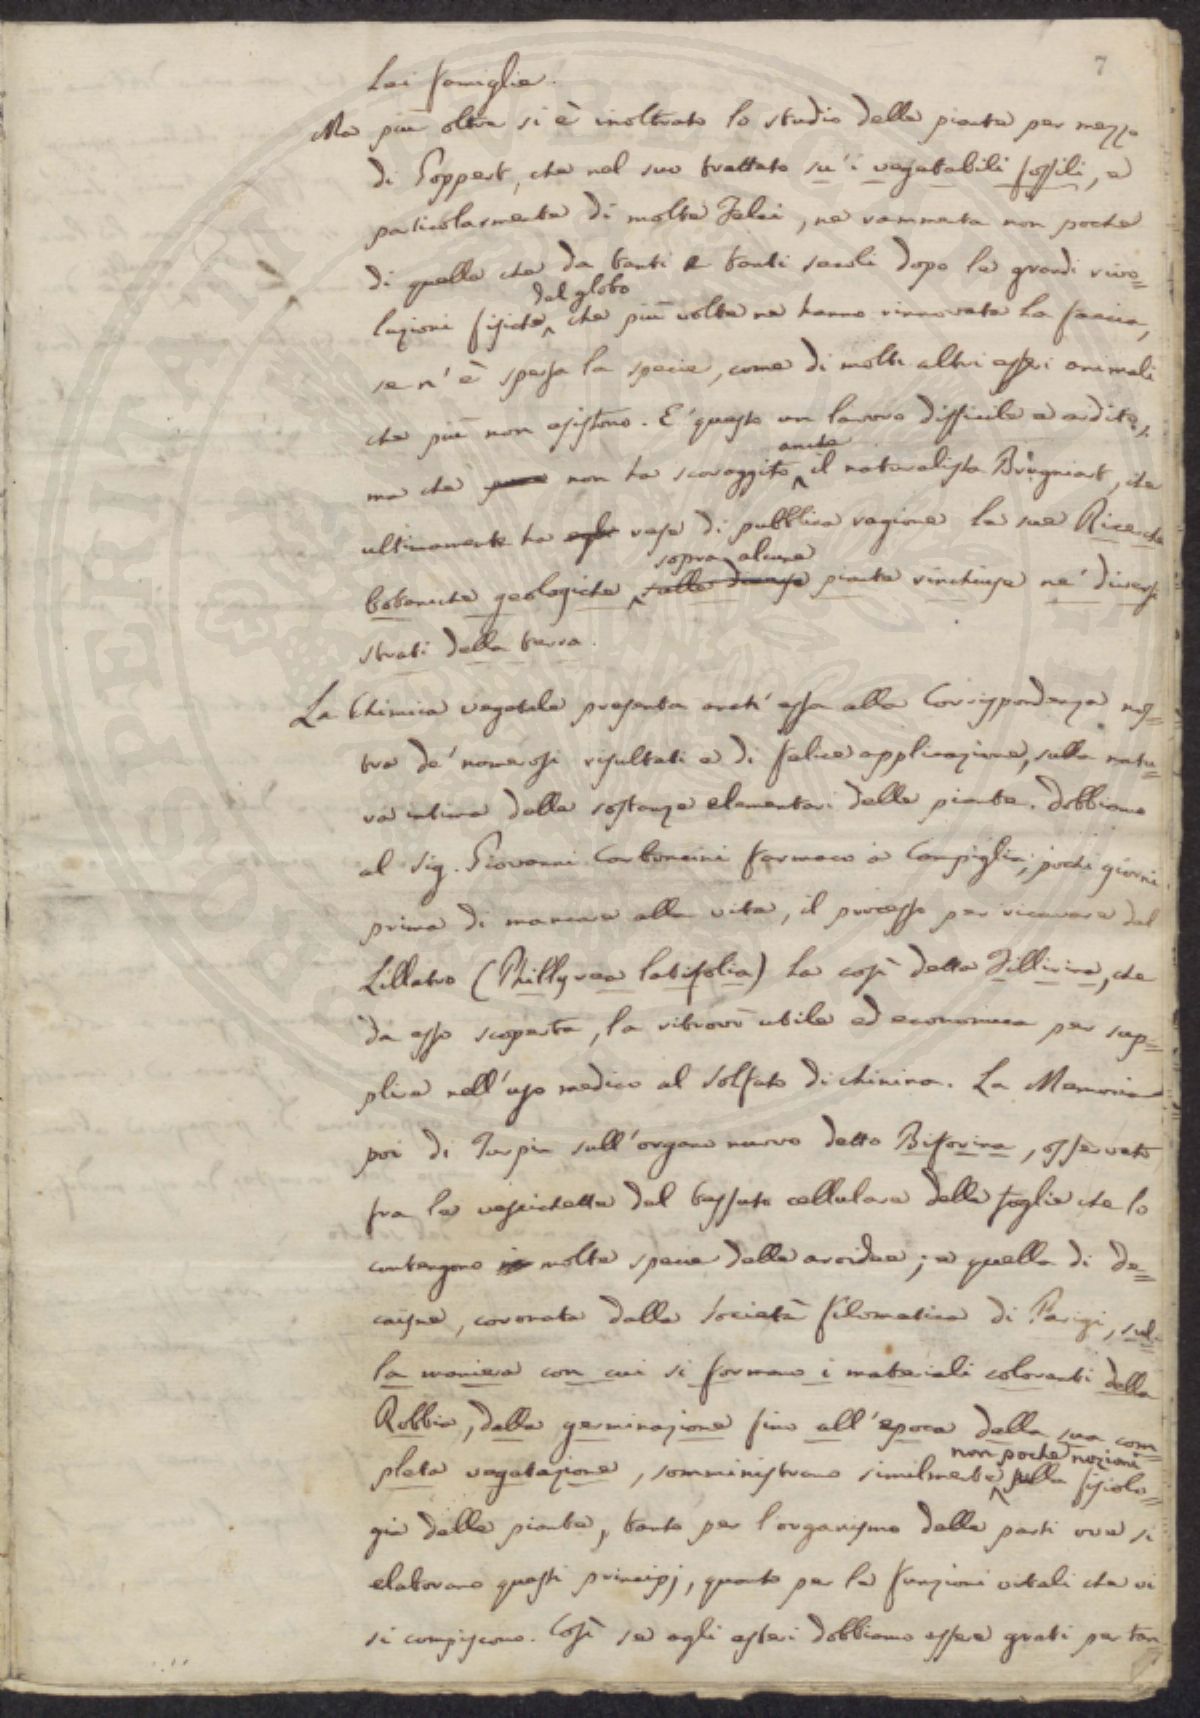 7
lei famiglie.
Ma più oltre si è inoltrato lo studio delle piante per mezzo
di Goppert, che nel suo trattato su' i vegetabili fossili, e
particolarmente di molte Felci, ne rammenta non poche
di quelle che da tanti e tanti secoli dopo le grandi rivo=
luzioni fisiche del globo che più volte ne hanno rinnovata la faccia,
se n' è spersa la specie, come di molti altri esseri animali
che più non esistono. E' questo un lavoro difficile e ardito,
ma che non ha scoraggito anche il naturalista Brugniart, che
ultimamente ha rese di pubblica ragione le sue Ricerche
botaniche geologiche sopra alcune piante rinchiuse ne' diversi
strati della terra.
La Chimica vegetale presenta anch' essa alla Corrispondenza nos=
tra de' numerosi risultati e di felice applicazione, sulla natu=
ra intima delle sostanze elementari delle piante. Dobbiamo
al Sig. Giovanni Carboncini farmaco a Campiglia, pochi giorni
prima di mancare alla vita, il processo per ricavare dal
Lillatro (Phillyrea latifolia) la così detta Fillirina, che
da esso scoperta, la ritrovò utile ed economica per sup=
plire nell'uso medico al solfato di chinina. La Memoria
poi di Turpin sull'organo nuovo detto Biforina, osservato
fra le vescichette del tessuto cellulare delle foglie che lo
contengono molte specie delle aroidee; e quella di De=
caisne, coronata dalla Società filomatica di Parigi, sul=
la maniera con cui si formano i materiali coloranti della
Robbia, dalla germinazione fino all'epoca della sua com=
pleta vegetazione, somministrano similmente non poche nozioni sulla fisiolo=
gia delle piante, tanto per l'organismo delle parti ove si
elaborano questi principj, quanto per le funzioni vitali che vi
si compiscono. Così se agli esteri dobbiamo essere grati per tan